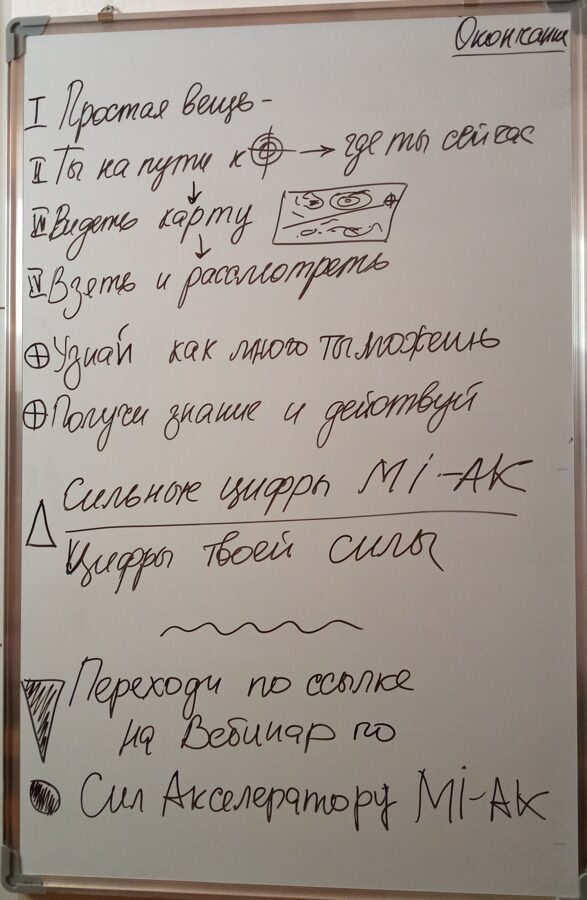 Окончание
I Простая вещь -
II Ты на пути к → где ты сейчас
III Видеть карту
IV Взять и рассмотреть
Узнай как много ты можешь
Получи знание и действуй
Сильные цифры Mi-AK
Цифры твоей силы
Переходи по ссылке
на Вебинар по
Сил Акселератору Mi-AK